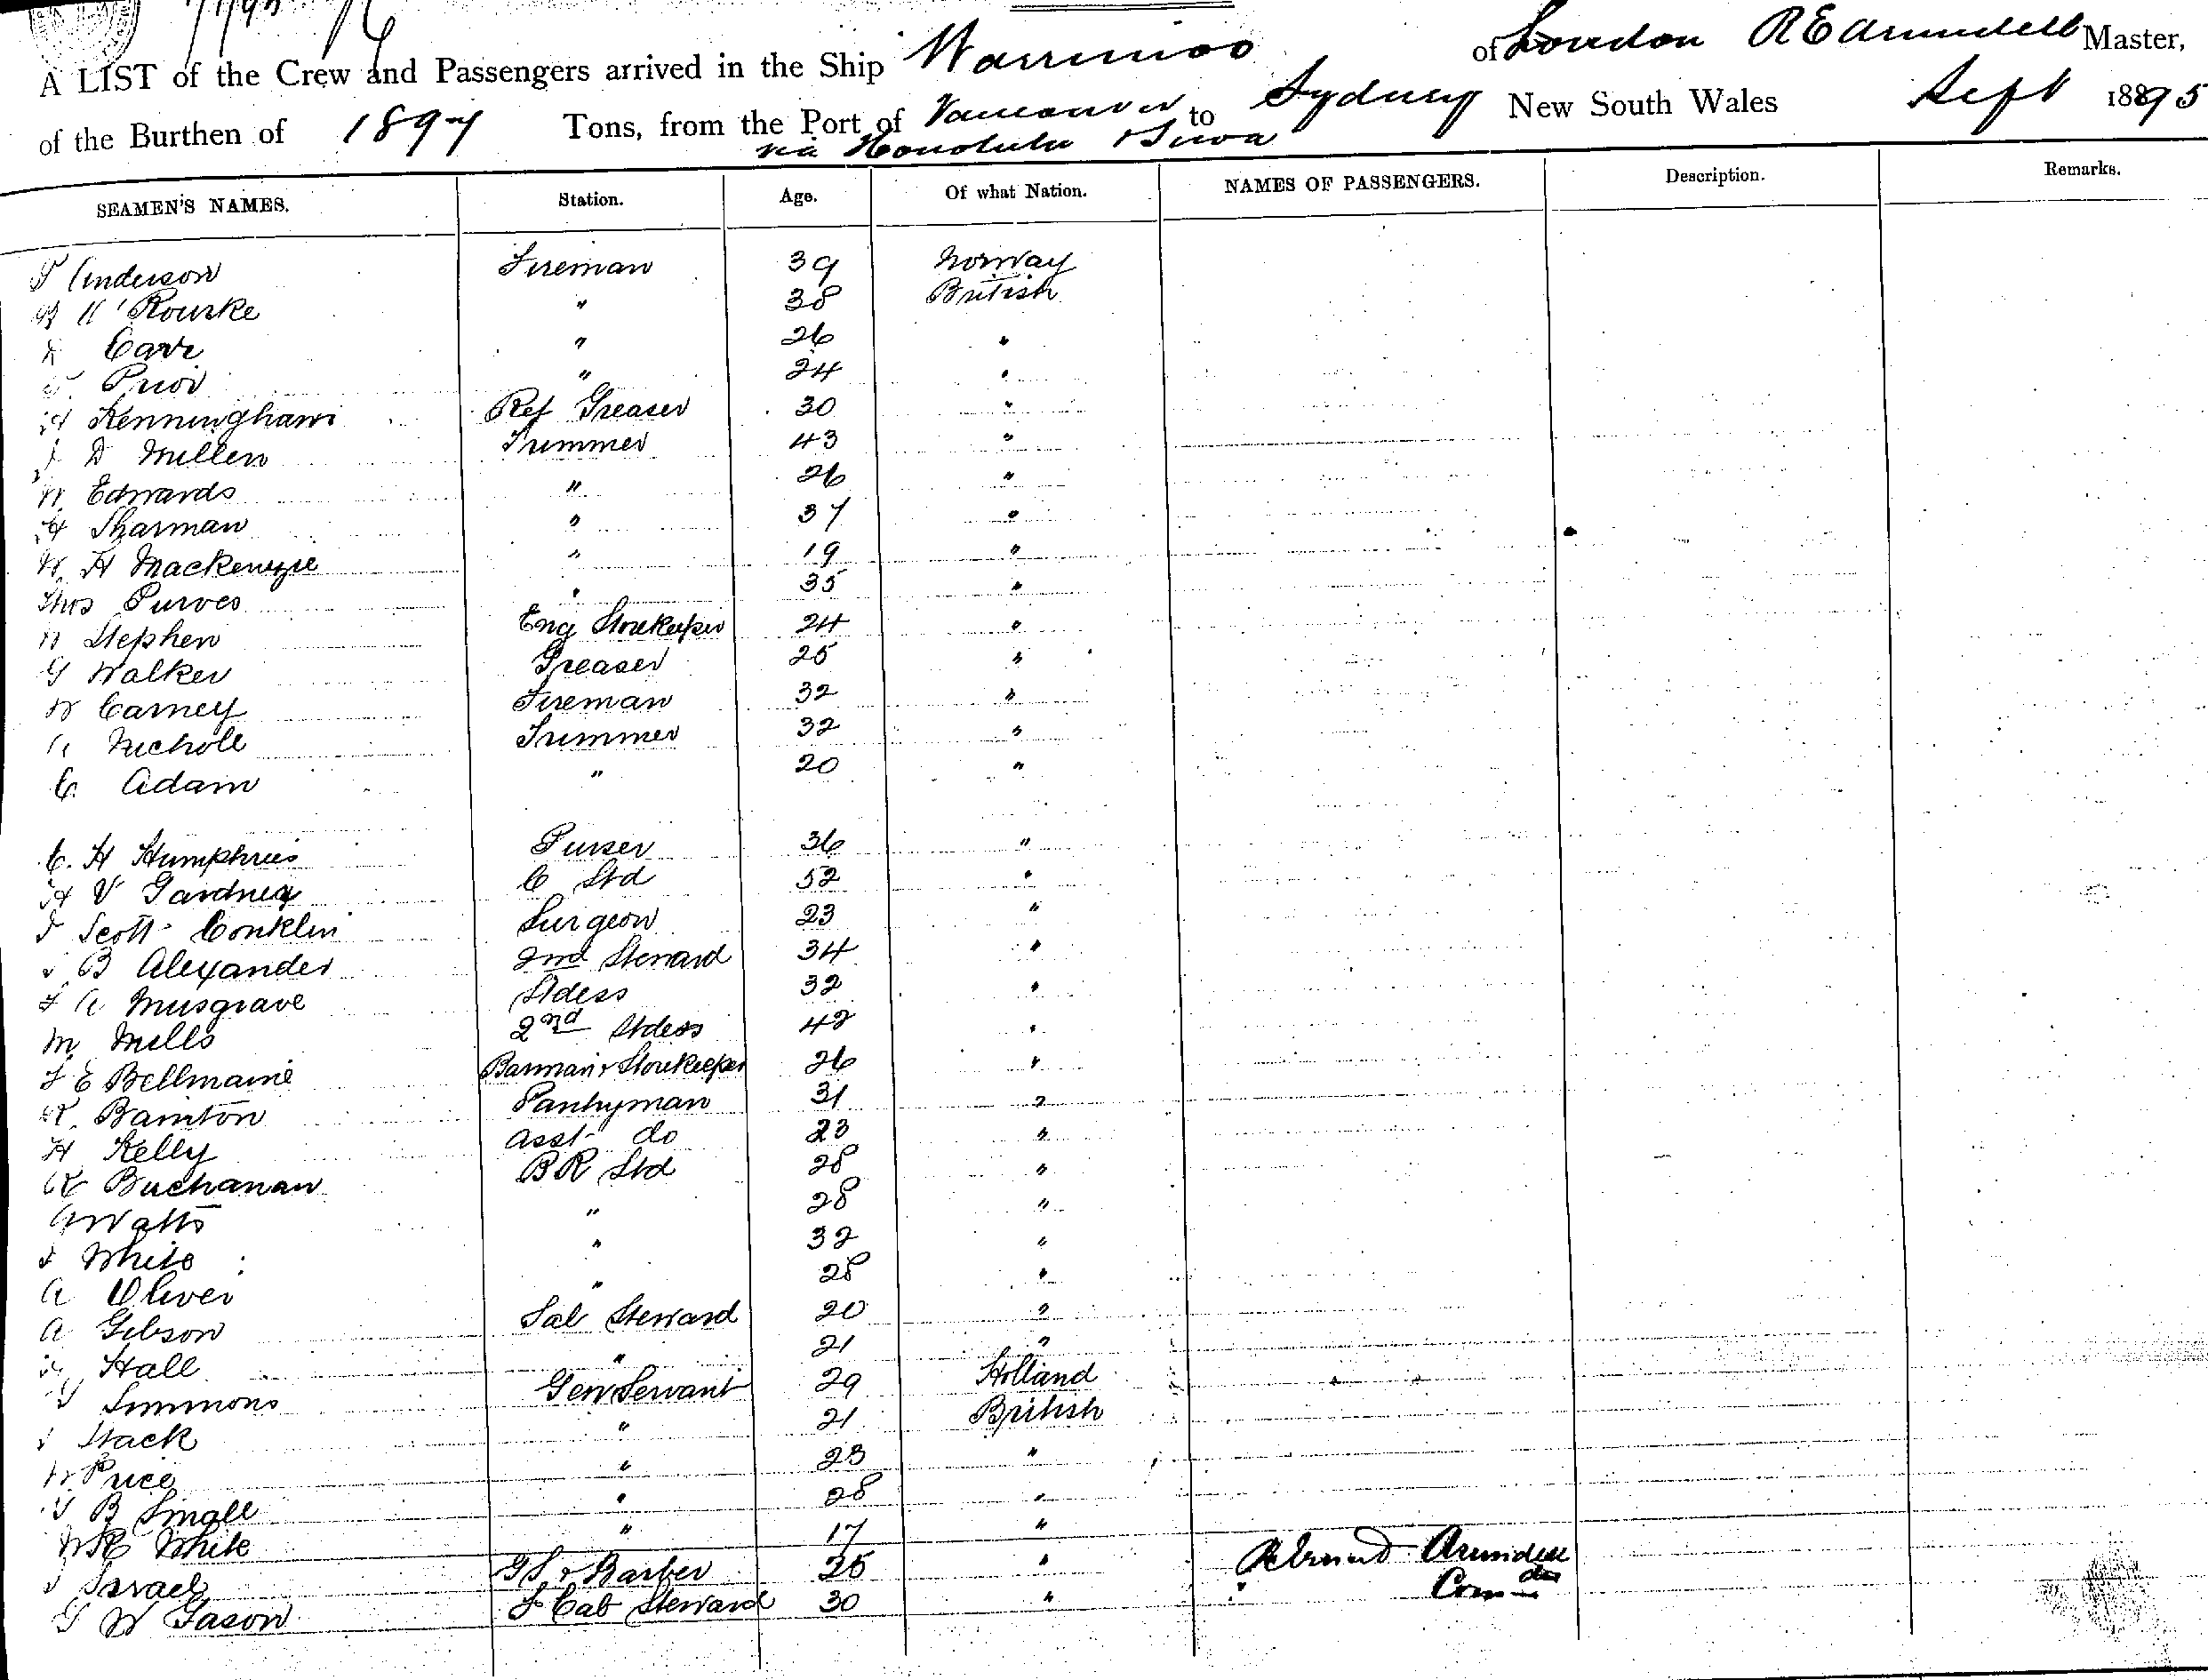 A LIST of the Crew and Passengers arrived in the Ship Warrimoo of London R E Arundell Master,
of the Burthen of 1897 Tons, from the Port of Vancouver to Sydney New South Wales Sept 1895
via Honolulu & Suva
SEAMEN'S NAMES. Station. Age. Of what Nation. NAMES OF PASSENGERS. Description. Remarks.
Anderson Fireman 39 Norway
O'Rourke " 38 British
Carr " 26 "
Prior " 24 "
H Kenningham Ref Greaser 30 "
J D Millen Trimmer 43 "
W Edwards " 26 "
H Sharman " 37 "
W. H Mackenzie " 19 "
Thos Purves " 35 "
W Stephen Eng Storekeeper 24 "
G Walker Greaser 25 "
W Carney Fireman 32 "
A Nicholl Trimmer 32 "
C. Adam " 20 "
C. H Humphries Purser 36 "
H V Gardner C Std 52 "
J Scott-Conklin Surgeon 23 "
B Alexander 2nd Steward 34 "
F A Musgrave Stdess 32 "
M. Mills 2nd Stdess 42 "
F E Bellmaine Barman & Storekeeper 26 "
R. Bainton Pantryman 31 "
H Kelly Asst do 23 "
R Buchanan BR Std 28 "
A Watts " 28 "
J White " 32 "
A Oliver " 28 "
A Gibson Sal Steward 20 "
Hall " 21 "
Simmons Gen Servant 29 Holland
J Stack " 21 British
W. Price " 23 "
B Small " 28 "
White " 17 "
J Israel GS & Barber 25 "
G W Gason F Cab Steward 30 "
Arundell
Comder